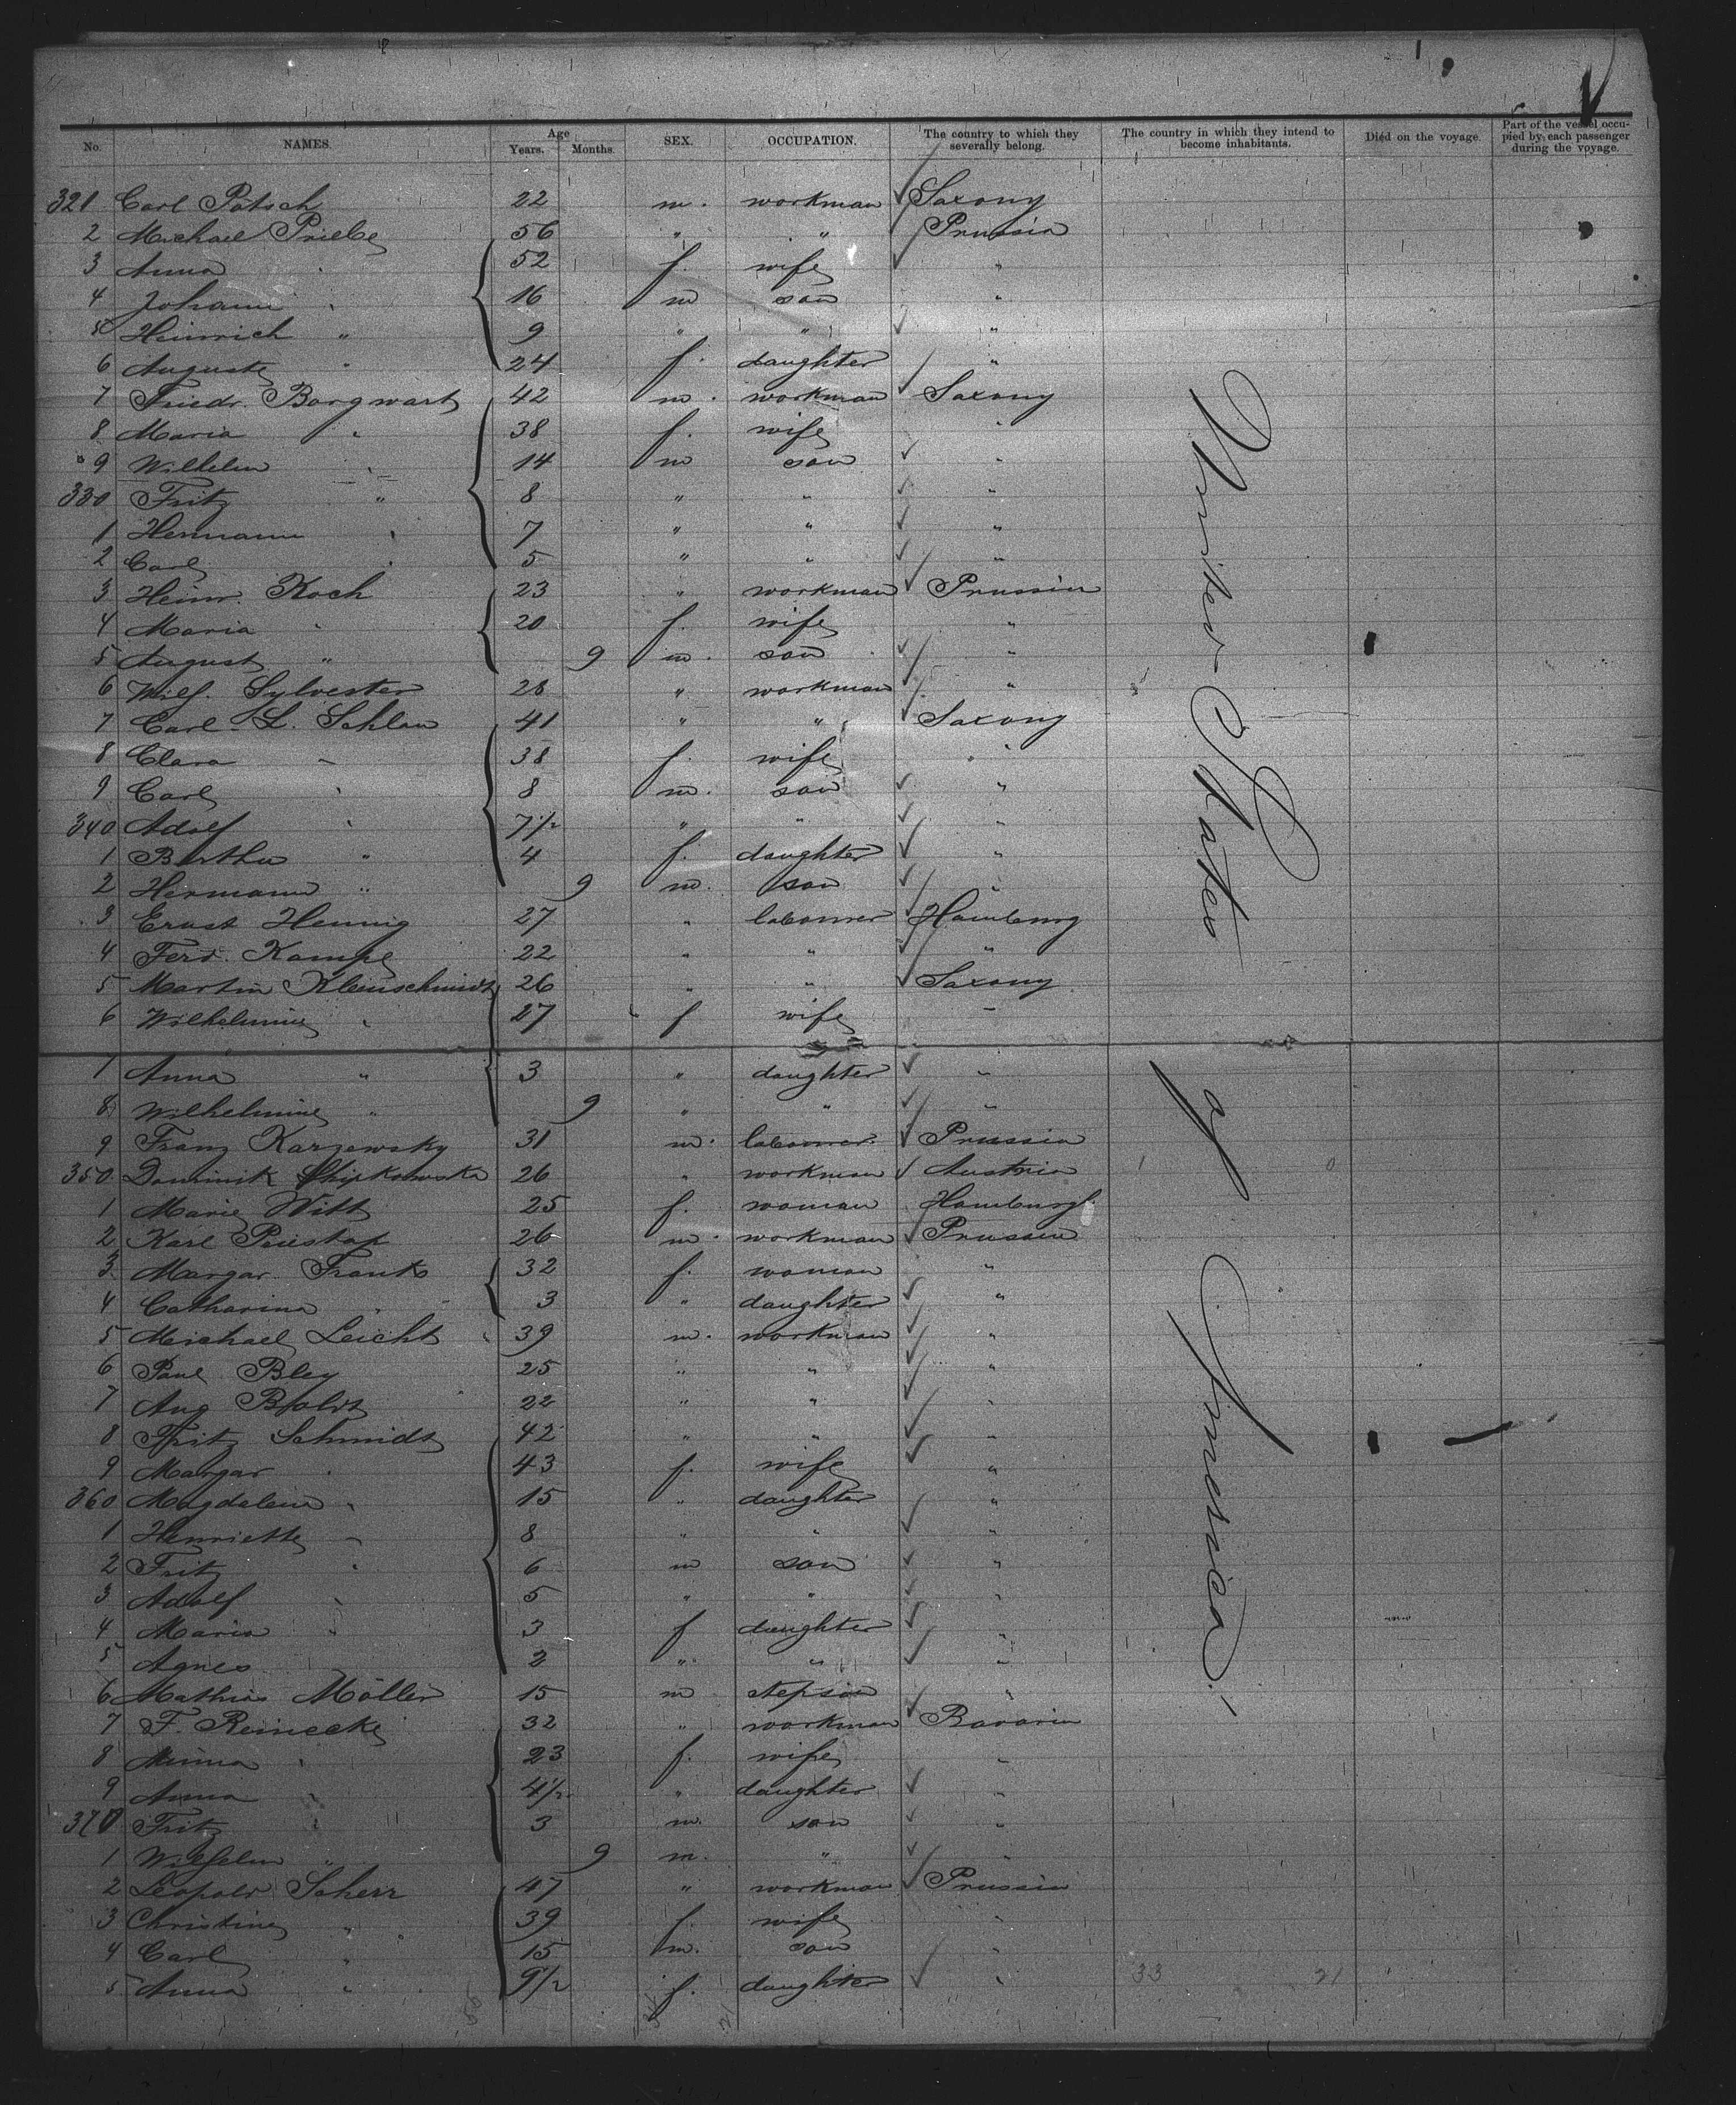 No. NAMES. Age Years. Months. SEX. OCCUPATION. The country to which they severally belong. The country in which they intend to become inhabitants. Died on the voyage. Part of the vessel occupied by each passenger during the voyage.
321 Carl Pötsch 22 m. workman Saxony
2 Michael Priebe 56 " " Prussia
3 Anna " 52 f. wife "
4 Johann " 16 m son "
5 Heinrich " 9 " " "
6 Auguste " 24 f. daughter "
7 Friedr. Borgwart 42 m. workman Saxony
8 Maria " 38 f. wife "
9 Wilhelm " 14 m son "
330 Fritz " 8 " " "
1 Hermann " 7 " " "
2 Carl " 5 " " "
3 Heinr. Koch 23 " workman Prussia
4 Maria " 20 f. wife "
5 August " 9 m. son "
6 Wilh. Sylvester 28 " workman "
7 Carl L. Schlau 41 " " Saxony
8 Clara " 38 f. wife "
9 Carl " 8 m. son "
340 Adolf " 7 1/2 " " "
1 Bertha " 4 f. daughter "
2 Hermann " 9 m. son "
3 Ernst Hennig 27 " labourer Hamburg
4 Ferd. Kampe 22 " " "
5 Martin Kleinschmidt 26 " " Saxony
6 Wilhelmine " 27 f wife "
7 Anna " 3 " daughter "
8 Wilhelmine " 9 " " "
9 Franz Karzewsky 31 m. labourer Prussia
350 Dominik 26 " workman Austria
1 Marie Witt 25 f. woman Hamburg
2 Karl Priestaf 26 m. workman Prussia
3 Margar. Frank 32 f. woman "
4 Catharina " 3 " daughter "
5 Michael Leicht 39 m. workman "
6 Paul Bley 25 " " "
7 Aug Boldt 22 " " "
8 Fritz Schmidt 42 " " "
9 Margar " 43 f. wife "
360 Magdalena " 15 " daughter "
1 Henriette " 8 " " "
2 Fritz " 6 m son "
3 Adolf " 5 " " "
4 Maria " 3 f daughter "
5 Agnes 2 " " "
6 Mathias Möller 15 m stepson "
7 F. Reinecke 32 " workman Bavaria
8 Minna " 23 f. wife "
9 Anna " 4 1/2 " daughter "
370 Fritz " 3 m. son "
1 Wilhelm " 9 m. " "
2 Leopold Scherr 47 " workman Prussia
3 Christine " 39 f. wife "
4 Carl " 15 m. son "
5 Anna " 9 1/2 f. daughter " 33 21
United States of America!